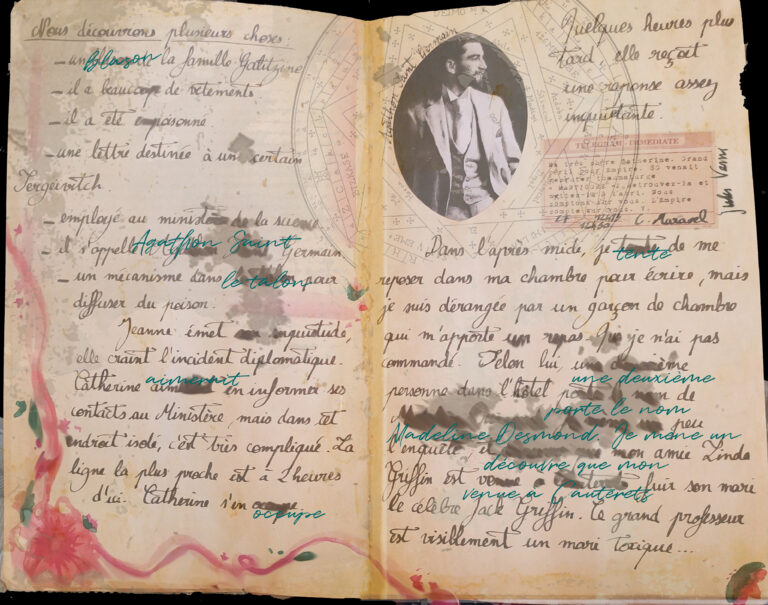 Nous découvrons plusieurs choses:
- un Blason la famille Galitzine
- il a beaucoup de vêtements
- il a été empoisonné
- une lettre destinée à un certain
Sergeivitch.
- employé au ministère de la guerre
- il s'appelle Agathon Saint Germain
- un mécanisme dans le talon pour
diffuser du poison.
Jeanne émet son inquiétude,
elle craint l'incident diplomatique.
Catherine aimerait en informer ses
contacts au Ministère, mais dans cet
endroit isolé, c'est très compliqué. La
ligne la plus proche est à 2 heures
d'ici. Catherine s'en occupe
Agathon Saint Germain
Quelques heures plus
tard, elle reçoit
une réponse assez
inquiétante.
TELEGRAM IMMEDIATE
Catherine. Grand
Empire. SG venait
retrouver-la et
Vous
L'Empire
compte sur vous. V.
C. Muravel
Dans l'après midi, je tente de me
reposer dans ma chambre pour écrire, mais
je suis dérangée par un garçon de chambre
qui m'apporte un repas que je n'ai pas
commandé. Selon lui, une deuxième
personne dans l'hôtel porte le nom de
Madeline Desmond. Je mène un peu
l'enquête découvre que mon amie Linda
Griffin est venue à Cauterets fuir son mari
le célèbre Jack Griffin. Le grand professeur
est visiblement un mari toxique...